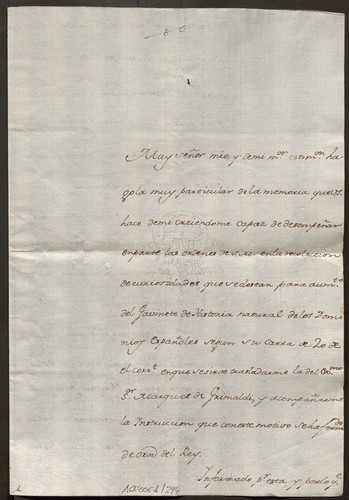 Muy señor mio, y de mi mor. estimon. ha-
gola muy particular de la memoria que
hace de mi creiendome capaz de desempeñar
en parte las ordenes de en la recoleccion
de curiosidades que se desean para aumto.
del Gavinete de Historia natural de los Domi-
nios Españoles segun su carta de 20 de
el corrte. en que se sirve trasladarme la del Exmo.
Sr. Marques de Grimaldi, y acompañarme
la Instruccion que con este motivo se ha
de orden del Rey.
Informado, de esta y por lo q.e